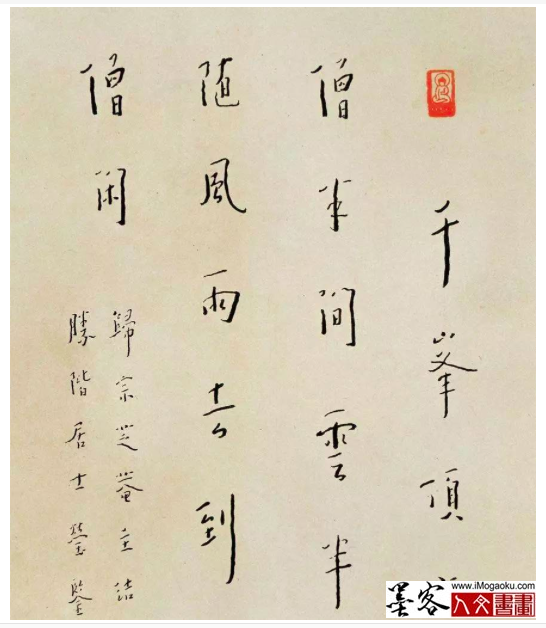 千峯頂
僧半間雲半
随風雨去到
僧閑
歸宗芝菴主
勝階居士
www.iMogaoku.com
墨客人文書畫